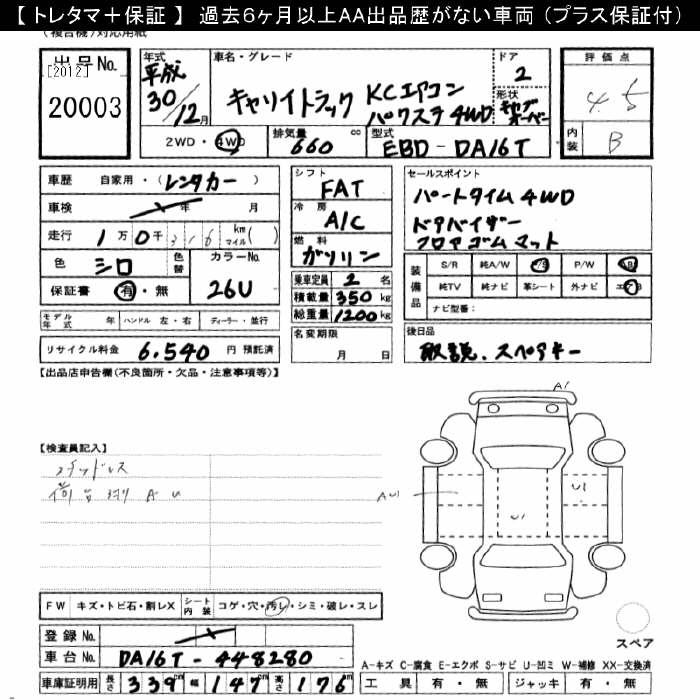 【 トレタマ＋保証 】 過去６ヶ月以上ＡＡ出品歴がない車両 (プラス保証付)
(複合機)対応用紙
出品No. [2012] 20003
年式 平成 30/12月
車名・グレード キャリイトラック KCエアコン パワステ 4WD
ドア 2
形状 キャブオーバー
評価点 4.5
内装 B
2WD・4WD 排気量 660 cc 型式 EBD-DA16T
車歴 自家用・(レンタカー)
車検 年 月
走行 1万0千316 km マイル( )
色 シロ 色替 カラーNo. 26U
保証書 有・無
シフト FAT
冷房 A/C
燃料 ガソリン
乗車定員 2 名
積載量 350 kg
総重量 1200 kg
セールスポイント
パートタイム 4WD
ドアバイザー
フロアゴムマット
装備品
S/R 純A/W P/S P/W AB
純TV 純ナビ 革シート 外ナビ
ナビ型番：
モデル年式 年 ハンドル 左・右 ディーラー・並行
名変期限 月 日
後日品 取説、スペアキー
リサイクル料金 6,540 円 預託済
【出品店申告欄(不良箇所・欠品・注意事項等)】
A1
【検査員記入】
スタッドレス
荷台 A U
AU1
U1
U1
FW キズ・トビ石・割レX シート内装 コゲ・穴・汚レ・シミ・破レ・スレ
スペア
登録No.
車台No. DA16T-448280
A-キズ C-腐食 E-エクボ S-サビ U-凹ミ W-補修 XX-交換済
車庫証明用 長さ 339cm 幅 147cm 高さ 176cm
工具 有・無 ジャッキ 有・無